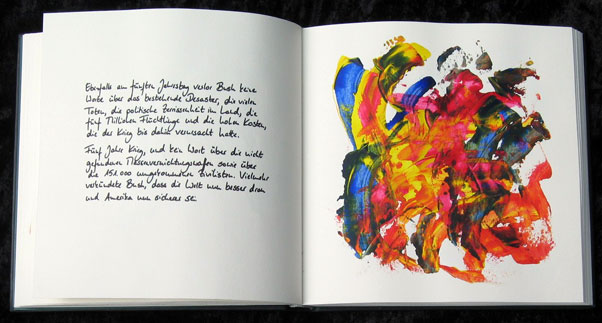 Ebenfalls am fünften Jahrestag verlor Bush keine
Worte über das bestehende Desaster, die vielen
Toten, die politische Zerrissenheit im Land, die
fünf Millionen Flüchtlinge und die hohen Kosten,
die der Krieg bis dahin verursacht hatte.
Fünf Jahre Krieg, und kein Wort über die nicht
gefundenen Massenvernichtungswaffen sowie über
die 151.000 umgekommenen Zivilisten. Vielmehr
verkündete Bush, dass die Welt nun besser dran
und Amerika nun sicherer sei.